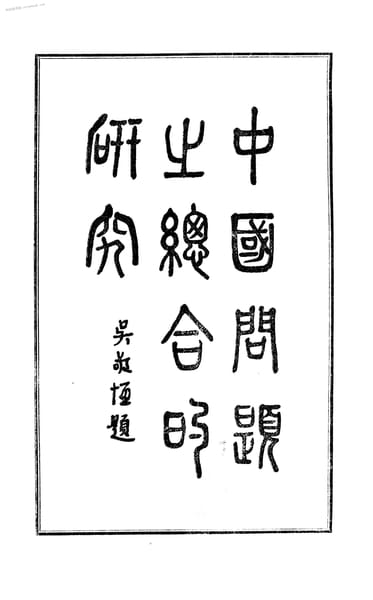 中國問題
之總合的
研究
吳敬恆題